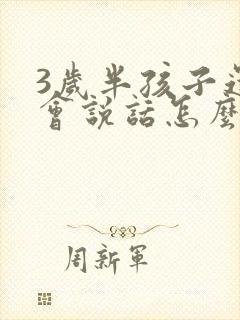 3歲半孩子
會説話怎麼
周新軍